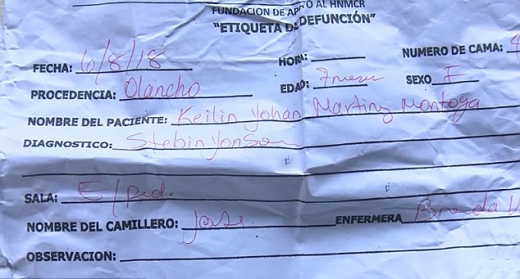 FUNDACION DE APOYO AL HNMCR
"ETIQUETA DE DEFUNCIÓN"
FECHA: 6/8/18 HORA:
NUMERO DE CAMA:
PROCEDENCIA: Olancho EDAD: 7 meses SEXO F
NOMBRE DEL PACIENTE: Keilin Yohan Martinz Montoya
DIAGNOSTICO: Stebin Yonson
SALA: E/ped.
NOMBRE DEL CAMILLERO: Jose ENFERMERA Brenda
OBSERVACION: